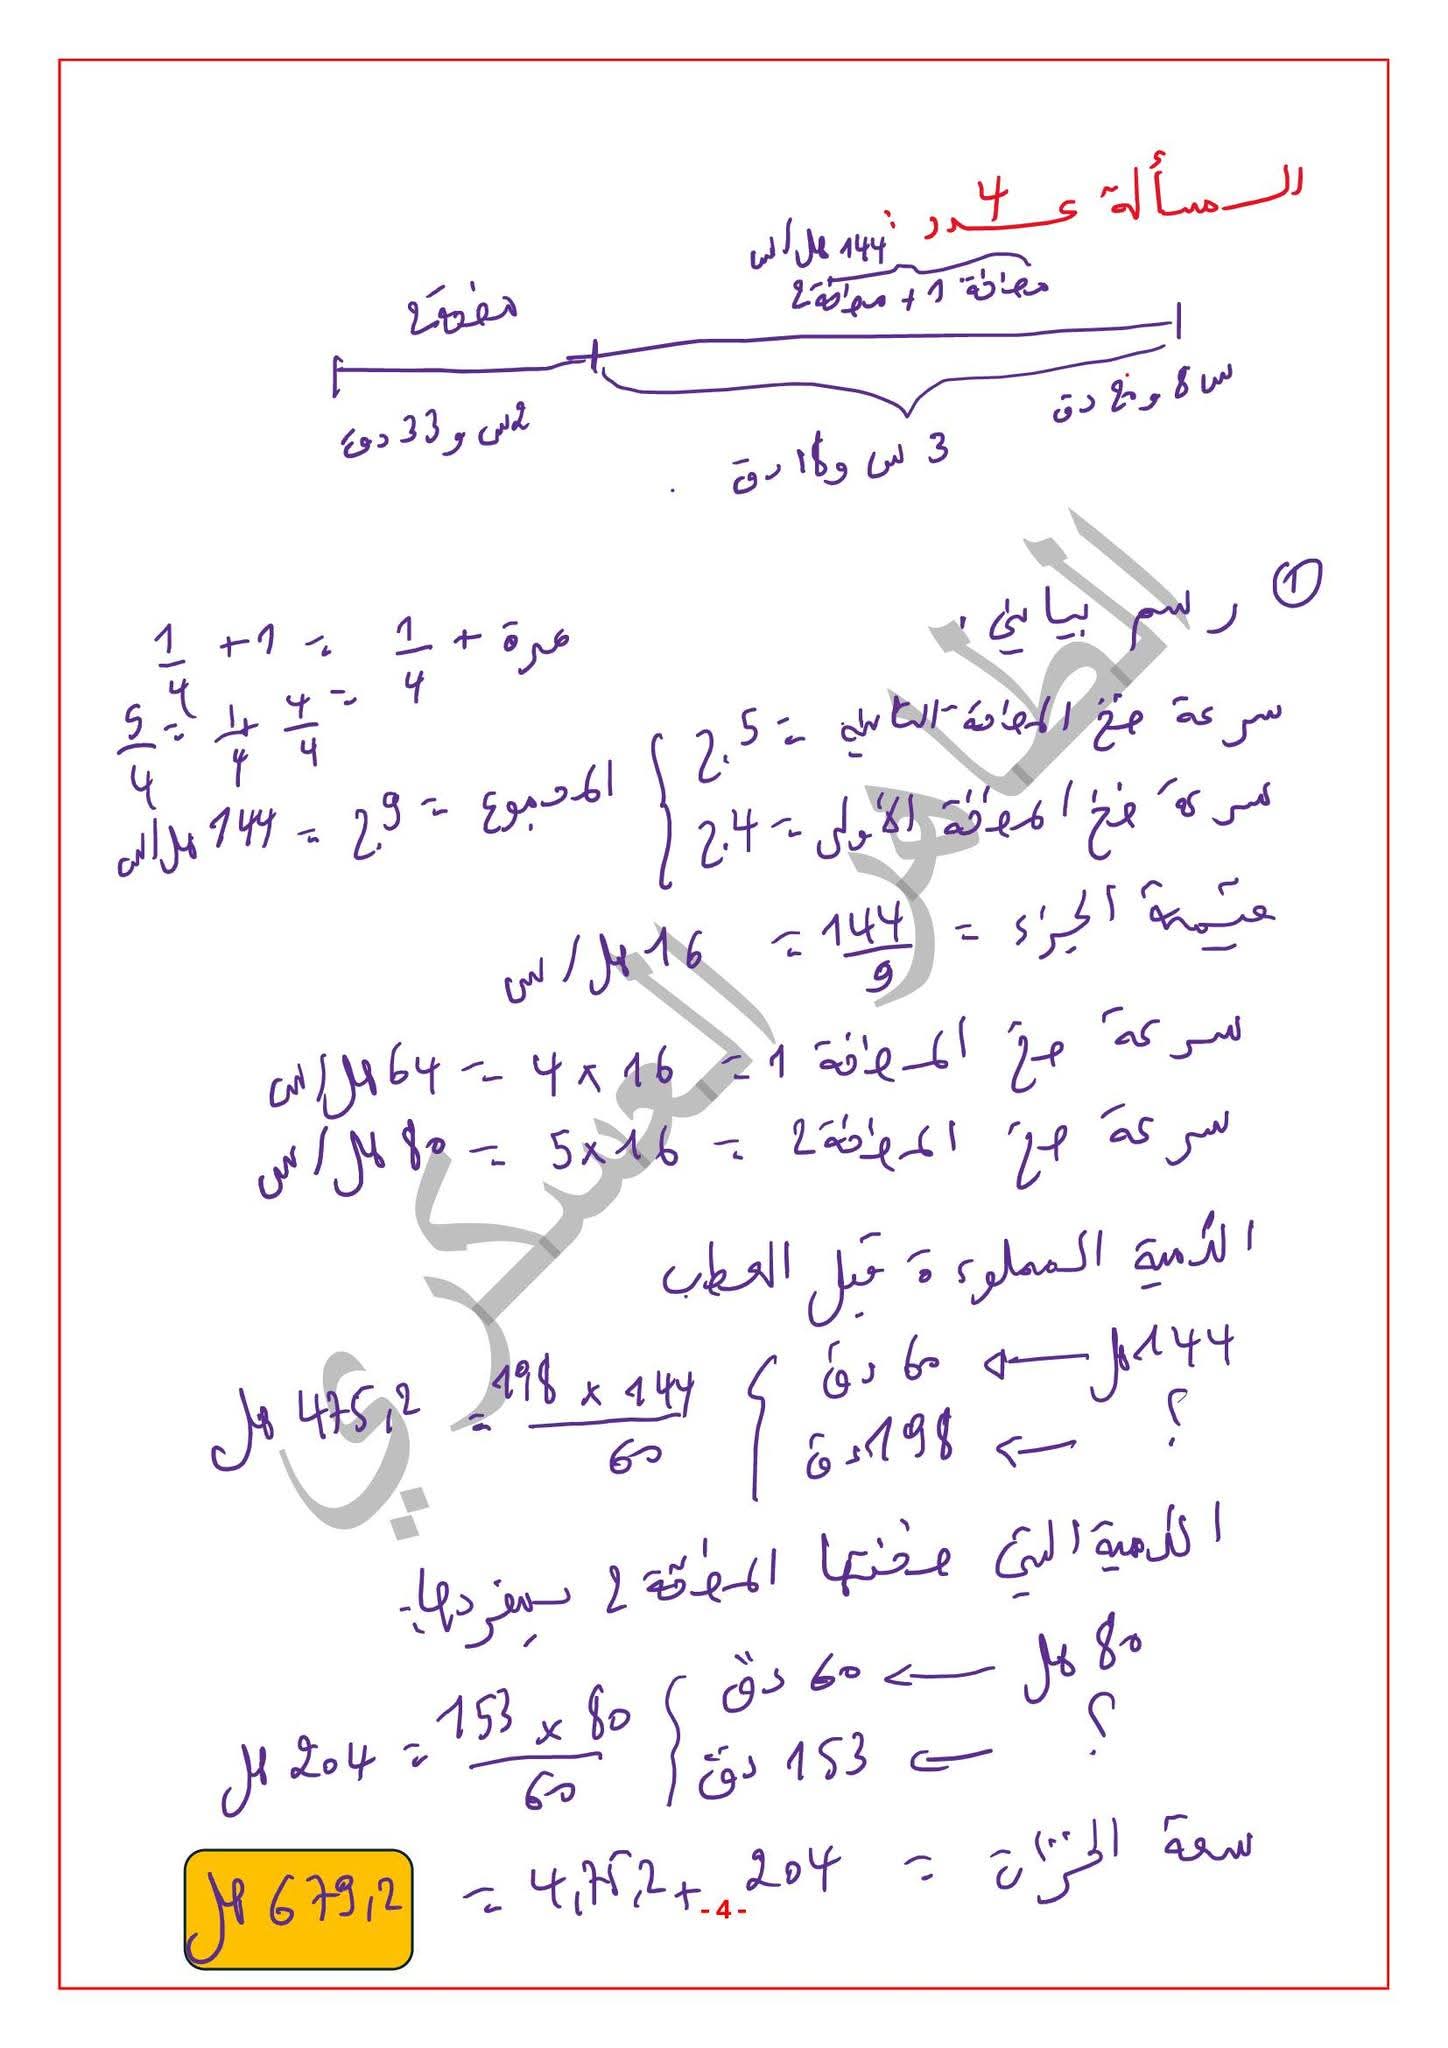 المسألة عدد 4 :
144 هل/س
مضخة 1 + مضخة 2
مضخة 2
س 8 و دق
3 س و 18 دق
2س و 33 دق
① رسم بياني :
مرة + 1/4 = 1 + 1/4
= 4/4 + 1/4 = 5/4
سرعة ضخ المضخة الثانية = 5.ج
سرعة ضخ المضخة الأولى = 4.ج
المجموع = 9.ج = 144 هل/س
قيمة الجزء = 144/9 = 16 هل/س
سرعة ضخ المضخة 1 = 16 × 4 = 64 هل/س
سرعة ضخ المضخة 2 = 16 × 5 = 80 هل/س
الكمية المملوءة قبل العطب
144 هل ← 60 دق
؟ ← 198 دق
198 × 144 / 60 = 475,2 هل
الكمية التي ضختها المضخة 2 بمفردها:
80 هل ← 60 دق
؟ ← 153 دق
153 × 80 / 60 = 204 هل
سعة الخزان = 204 + 475,2 =
679,2 هل
- 4 -
الطاهر العسكري